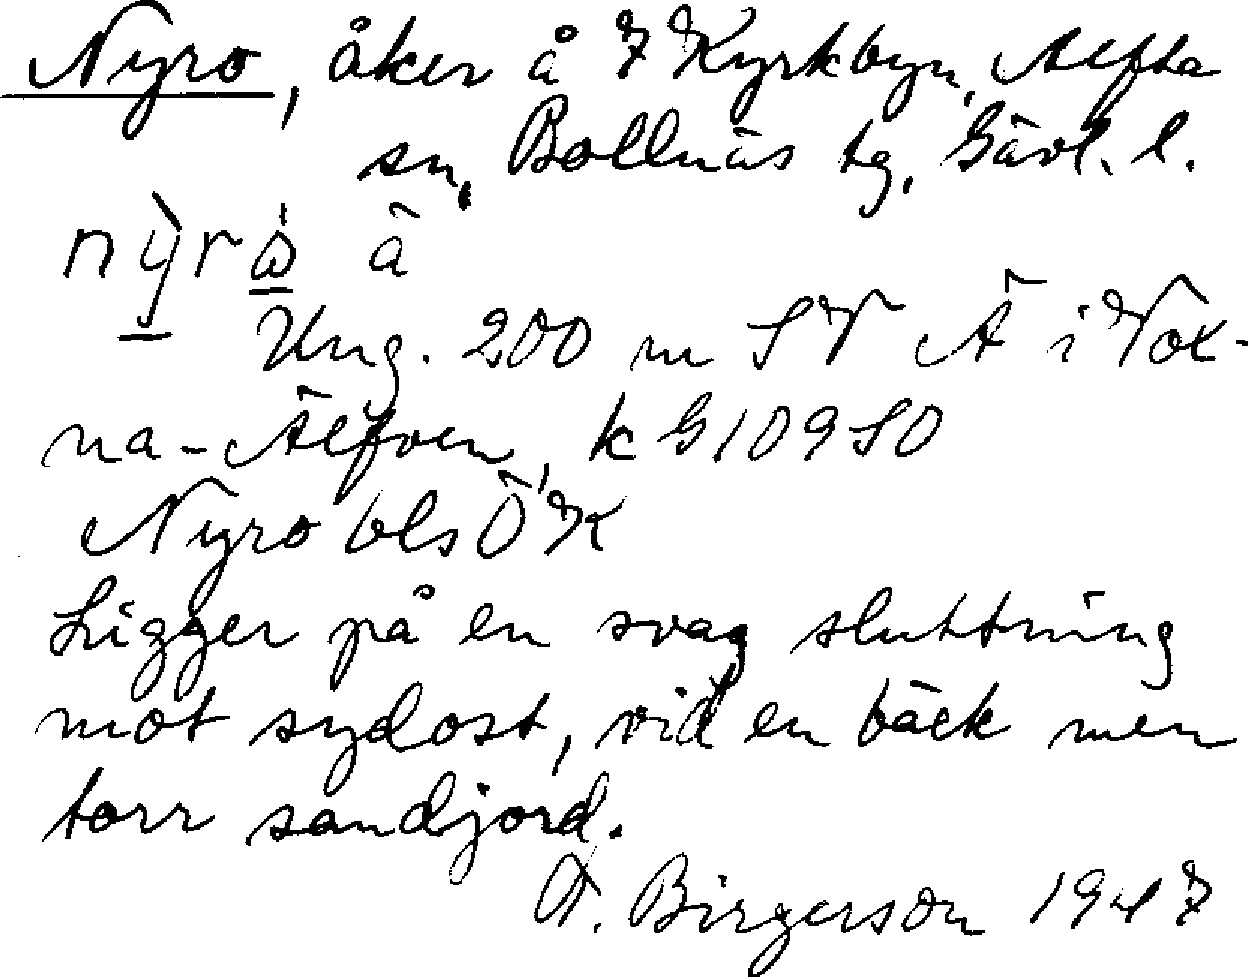 Nyro, åker å 7 Kyrkbyn, Alfta
sn, Bollnäs tg, Gävl. l.
ã
Ung. 200 m SV Ä i Vox-
na-Älfven, k G109SO
Nyro bls ÖK
Ligger på en svag sluttning
mot sydost, vid en bäck men
torr sandjord.
F. Birgerson 1947